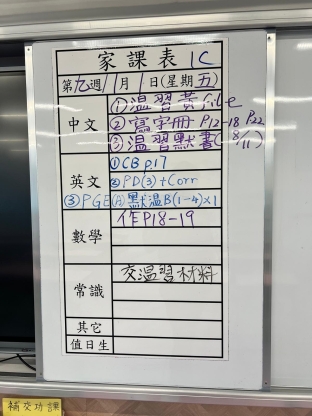 家課表 1C
第九週 1月1日(星期五)
中文
①溫習黃file
②寫字冊 P12-18 P22
③溫習默書(8/11)
英文
①CB p.17
②PD(3)+Corr
③PGE(A)默溫B(1-4)x1
數學
作P18-19
常識
交溫習材料
其它
值日生
補交功課